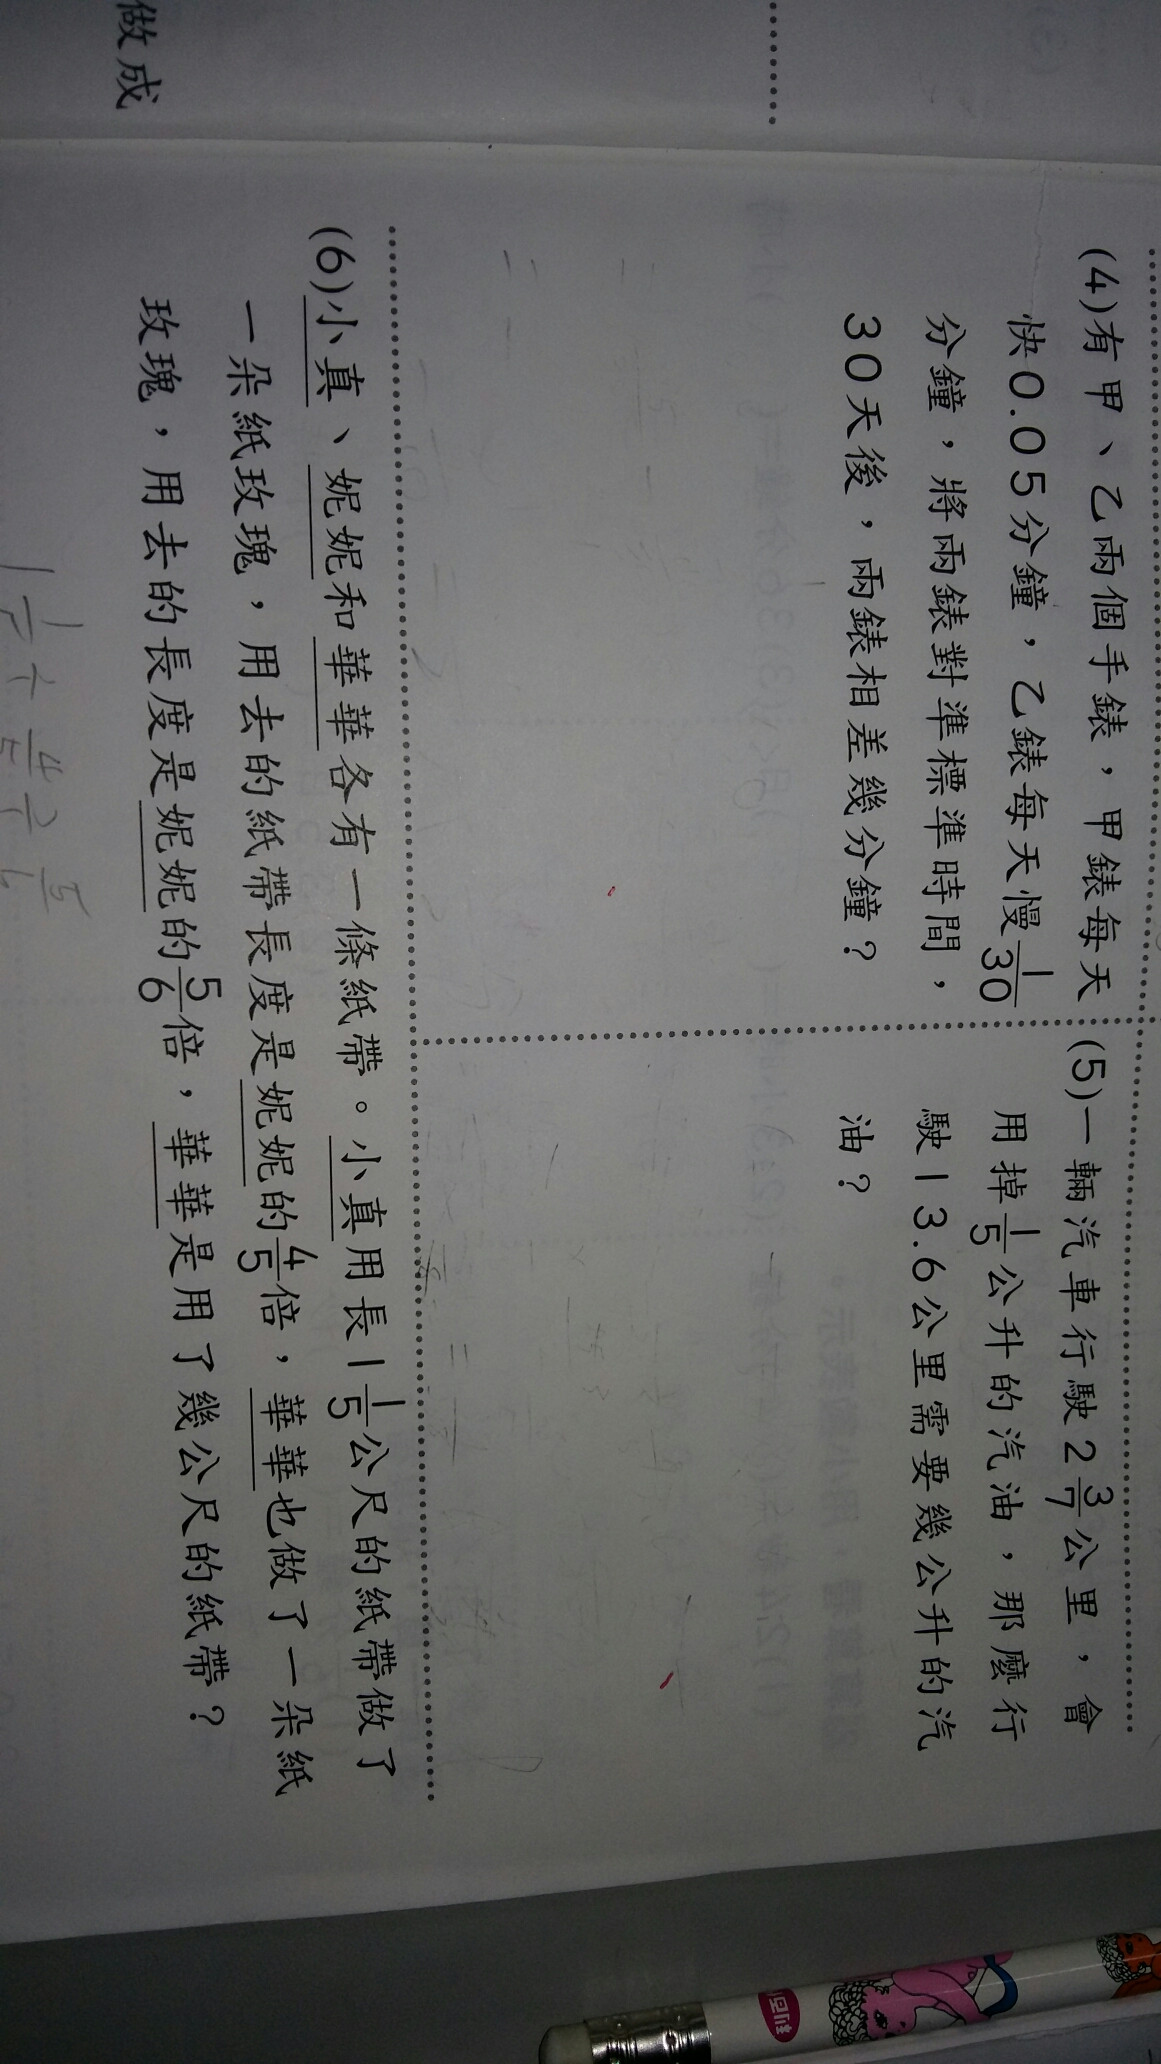 做成
(4)有甲、乙兩個手錶，甲錶每天
快0.05分鐘，乙錶每天慢1/30
分鐘，將兩錶對準標準時間，
30天後，兩錶相差幾分鐘？
(5)一輛汽車行駛2 3/7公里，會
用掉1/5公升的汽油，那麼行
駛13.6公里需要幾公升的汽
油？
(6)小真、妮妮和華華各有一條紙帶。小真用長1 1/5公尺的紙帶做了
一朵紙玫瑰，用去的紙帶長度是妮妮的4/5倍，華華也做了一朵紙
玫瑰，用去的長度是妮妮的5/6倍，華華是用了幾公尺的紙帶？